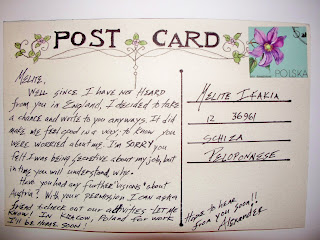 POST CARD
POLSKA
MELITE,
WELL SINCE I HAVE NOT HEARD
from you in England, I decided to take
a chance and write to you anyways. It did
make me feel good in a way, to know you
were worried about me. I'm SORRY you
felt I was being secretive about my job, but
in time you will understand why.
Have you had any further "visions" about
Austria? With your permission I can again
send + check out our activities - LET ME
KNOW! IN KRACOW, POLAND FOR WORK
I'll be HOME SOON!
MELITE IKAKIA
12 36961
SCHIZA
PELOPONNESE
Hope to hear
from you soon!!
Alexander